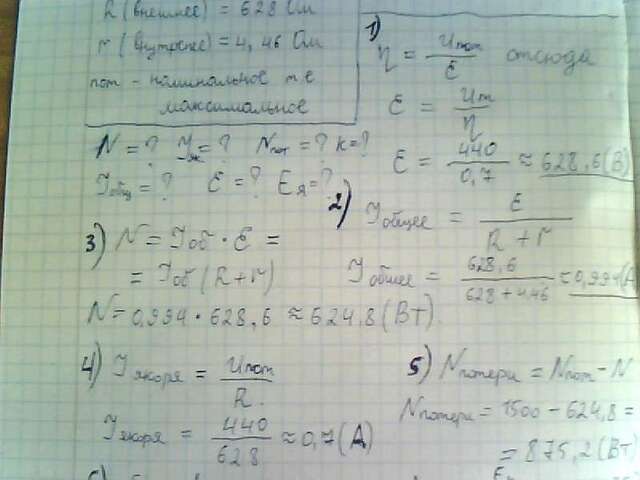 R (внешнее) = 628 Ом
r (внутренее) = 4,46 Ом
пот - номинальное т е
максимальное
N = ? Iя = ? Nпот = ? K = ?
Iобщ = ? E = ? Eя = ?
1)
η = Uпот / E отсюда
E = Uп / η
E = 440 / 0,7 ≈ 628,6 (В)
2) Iобщее = E / R + r
Iобщее = 628,6 / 628 + 4,46 ≈ 0,994 (А
3) N = Iоб · E =
= Iоб (R + r)
N = 0,994 · 628,6 ≈ 624,8 (Вт)
4) Iякоря = Uпот / R
Iякоря = 440 / 628 ≈ 0,7 (А)
5) Nпотери = Nпот - N
Nпотери = 1500 - 624,8 =
= 875,2 (Вт)